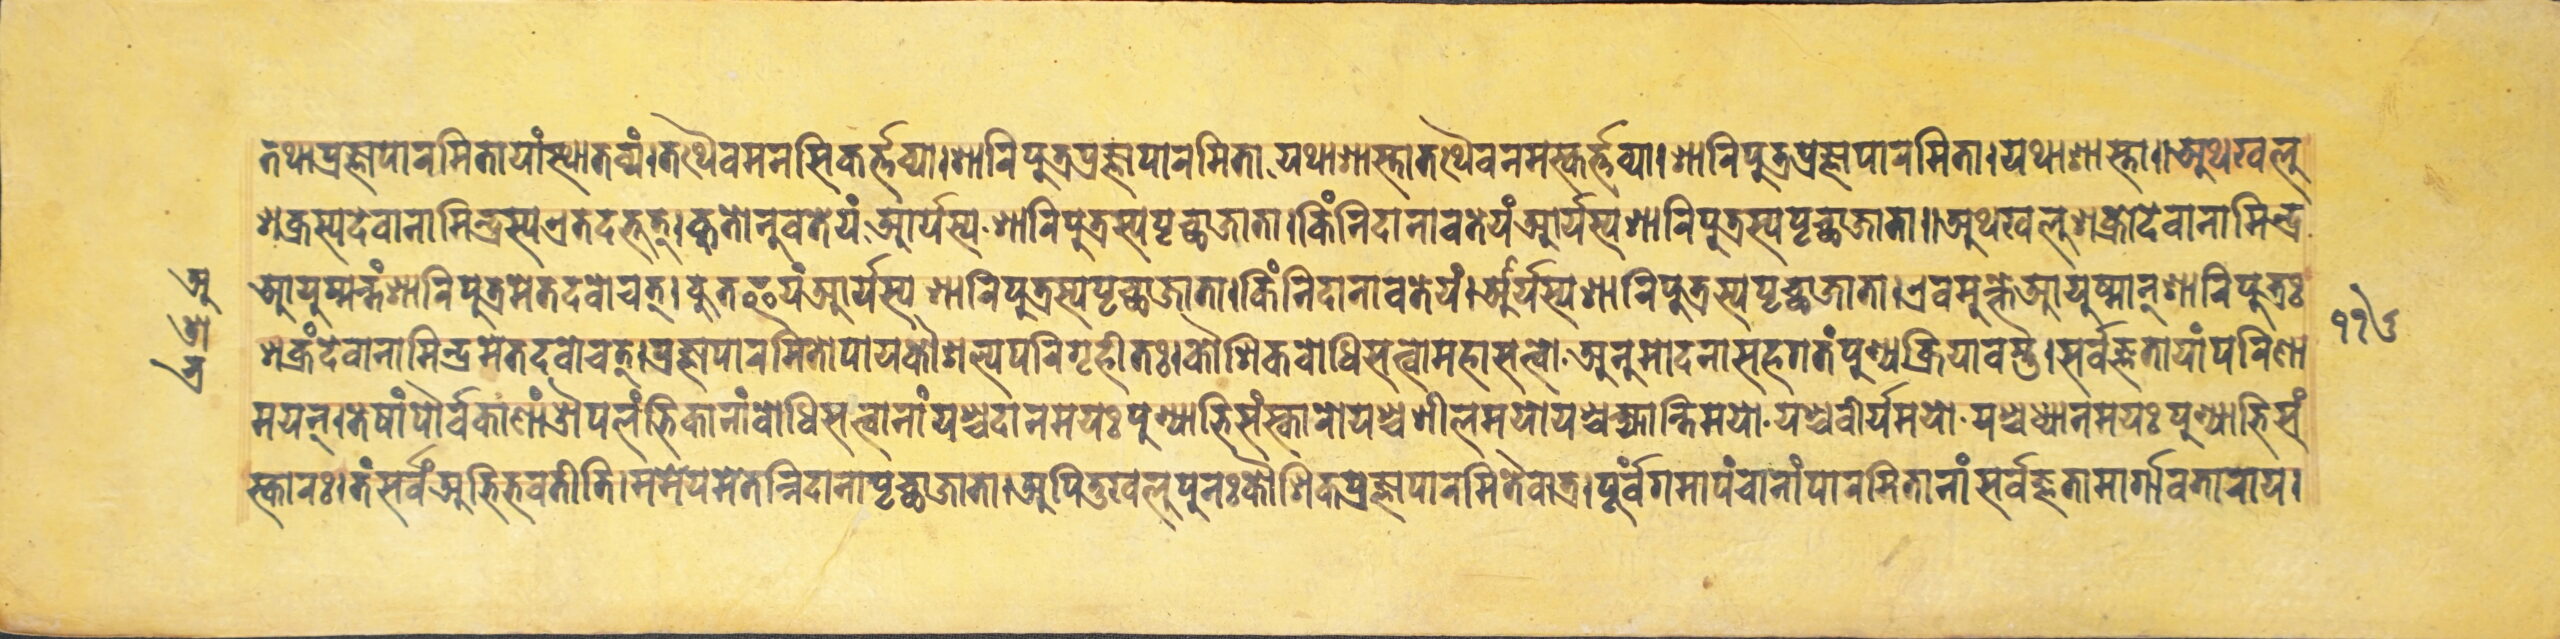 तथाप्रज्ञापारमितायांस्थातव्यं।तथैवमनसिकर्त्तव्या।शारिपुत्रप्रज्ञापारमिता.यथाशास्तातथैवनमस्कर्त्तव्या।शारिपुत्रप्रज्ञापारमिता।यथाशास्ता॥अथखलु
शक्रस्यदेवानामिन्द्रस्यएतदभूत्।कुतोनुवतेयं.आर्यस्य.शारिपुत्रस्यपृच्छाजाता।किंनिदानावतेयंआर्यस्यशारिपुत्रस्यपृच्छाजाता॥अथखलुशक्रोदेवानामिन्द्र
आयुष्मन्तंशारिपुत्रमेतदवोचत्।कुतइयंआर्यस्यशारिपुत्रस्यपृच्छाजाता।किंनिदानावतेयं।आर्यस्यशारिपुत्रस्यपृच्छाजाता।एवमुक्तेआयुष्मान्शारिपुत्रः
शक्रंदेवानामिन्द्रमेतदवोचत्।प्रज्ञापारमितोपायकौशल्यपरिगृहीतः।कौशिकबोधिसत्त्वोमहासत्त्वो.अनुमोदनासहगतंपुण्यक्रियावस्तु।सर्वज्ञतायांपरिणा
मयन्।तेषांपौर्वकाणांऔपलंभिकानांबोधिसत्त्वानांयश्चदानमयःपुण्याभिसंस्कारोयश्चशीलमयोयश्चक्ष्यान्तिमयो.यश्चवीर्यमयो.यश्चध्यानमयःपुण्याभिसं
स्कारः।तंसर्वंअभिभवतीति।ममेयमेतन्निदानापृच्छाजाता।अपितुखलुपुनःकौशिकप्रज्ञापारमितैवात्र।पूर्वंगमापंचानांपारमितानांसर्वज्ञतामार्गावताराय।
अ
श
११७